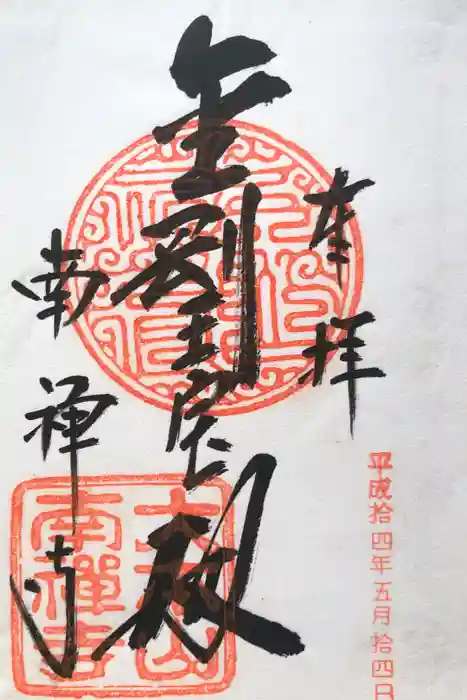 奉拝
平成拾四年五月拾四日
金剛王宝殿
南禅寺
大本山
南禪寺